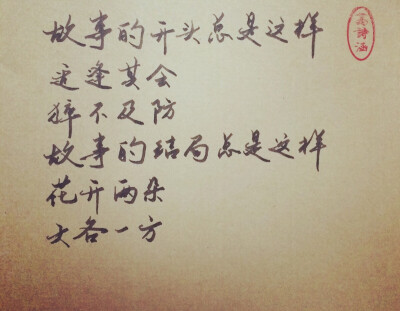 故事的开头总是这样
适逢其会
猝不及防
故事的结局总是这样
花开两朵
天各一方
詩涵